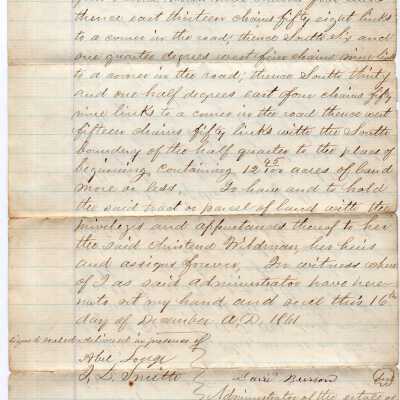 thence east thirteen chains fifty eight links
to a corner in the road; thence South six and
one quarter degrees west four chains nine links
to a corner in the road; thence South thirty
and one half degrees east four chains fifty
nine links to a corner in the road thence west
fifteen chains fifty links with the South
boundery of the half quarter to the place of
beginning containing 12 45/100 acres of land
more or less. To have and to hold
the said tract or parcel of land with the
privileges and appertances thereof to her
the said Wildman, her heirs
and assigns forever. In witness where
of I as said administrator have here
unto set my hand and seal this 16th
day of December A.D. 1861
Signed sealed delivered in presence of
Abel
J. L. Smith
Administrator of the estate of